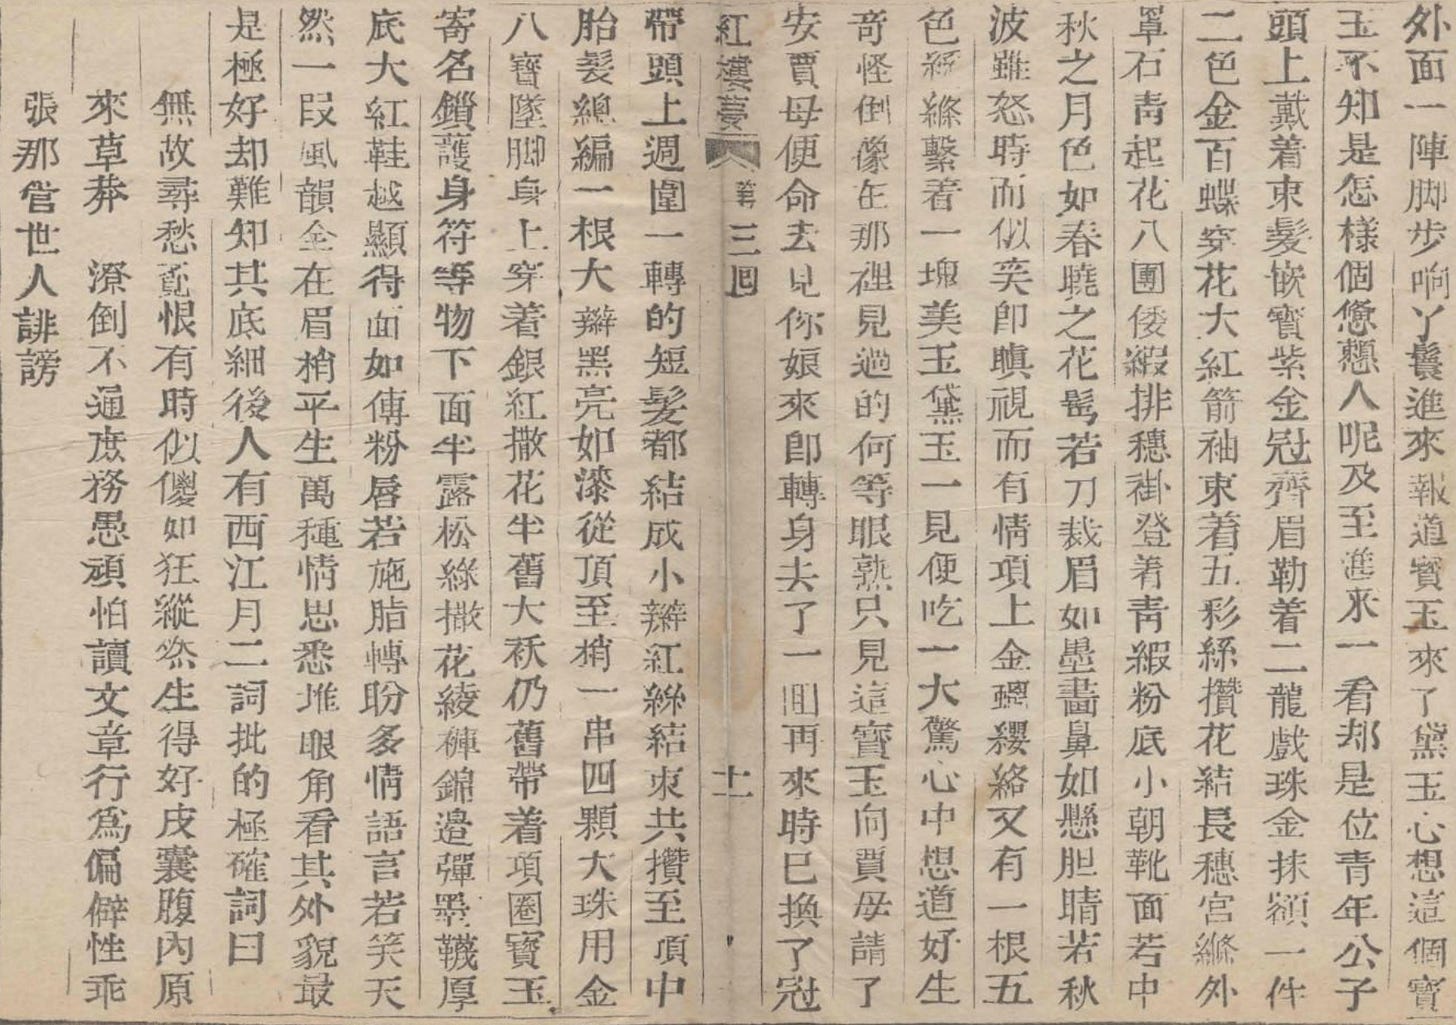 外面一陣脚步响丫鬟進來報道寳玉來了黛玉心想這個寳
玉不知是怎樣個憊懣人呢及至進來一看却是位青年公子
頭上戴着束髮嵌寳紫金冠齊眉勒着二龍戲珠金抹額一件
二色金百蝶穿花大紅箭袖束着五彩絲攢花結長穗宮縧外
罩石青起花八團倭緞排穗褂登着青緞粉底小朝靴面若中
秋之月色如春曉之花鬂若刀裁眉如墨畵鼻如懸胆睛若秋
波雖怒時而似笑即瞋視而有情項上金螭纓絡又有一根五
色絲縧繫着一塊美玉黛玉一見便吃一大驚心中想道好生
奇怪倒像在那裡見過的何等眼熟只見這寳玉向賈母請了
安賈母便命去見你娘來即轉身去了一囘再來時已換了冠
紅樓夢 第三囘 十一
帶頭上週圍一轉的短髮都結成小辮紅絲結束共攢至頂中
胎髮總編一根大辮黑亮如漆從頂至梢一串四顆大珠用金
八寳墜脚身上穿着銀紅撒花半舊大袄仍舊帶着項圈寳玉
寄名鎖護身符等物下面半露松綠撒花綾褲錦邉彈墨襪厚
底大紅鞋越顯得面如傳粉唇若施脂轉盼多情語言若笑天
然一叚風韻全在眉梢平生萬種情思悉堆眼角看其外貌最
是極好却難知其底細後人有西江月二詞批的極確詞曰
無故尋愁覔恨有時似儍如狂縱然生得好皮囊腹內原
來草莽 潦倒不通庶務愚頑怕讀文章行爲偏僻性乖
張那管世人誹謗